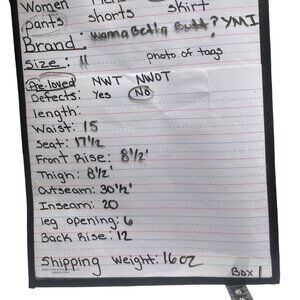 Women Mens
pants shorts shirt
Brand: Wanna Betta Butt? YMI
Size: 11 photo of tags
Pre-loved NWT NWOT
Defects: Yes No
length:
Waist: 15
Seat: 17 1/2
Front Rise: 8 1/2'
Thigh: 8 1/2'
Outseam: 30 1/2'
Inseam: 20
leg opening: 6
Back Rise: 12
Shipping Weight: 16 oz
Box 1